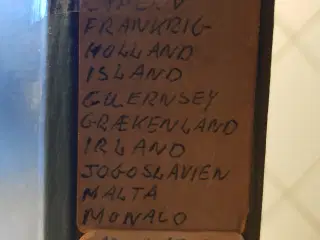 FRANKRIG
HOLLAND
ISLAND
GUERNSEY
GRÆKENLAND
IRLAND
JOGOSLAVIEN
MALTA
MONACO